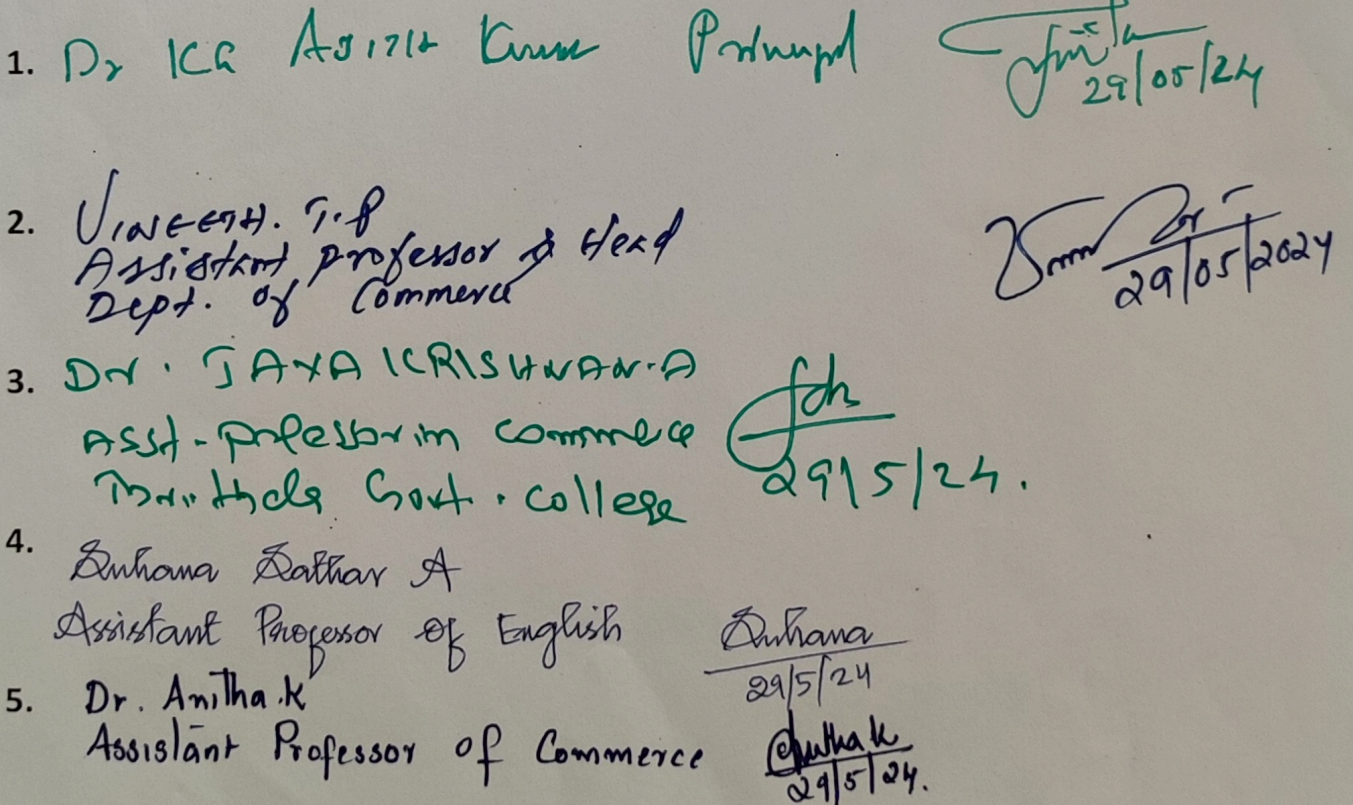 1. Dr KG Ajith Kumar Principal
29/05/24
2. VINEETH. T.P
Assistant professor & Head
Dept. of Commerce
29/05/2024
3. Dr. JAYAKRISHNAN.A
Asst. professor in commerce
Thrithala Govt. college
29/5/24.
4. Suhana Sathar A
Assistant Professor of English Suhana
29/5/24
5. Dr. Anitha.K
Assistant Professor of Commerce Anitha K
29/5/24.